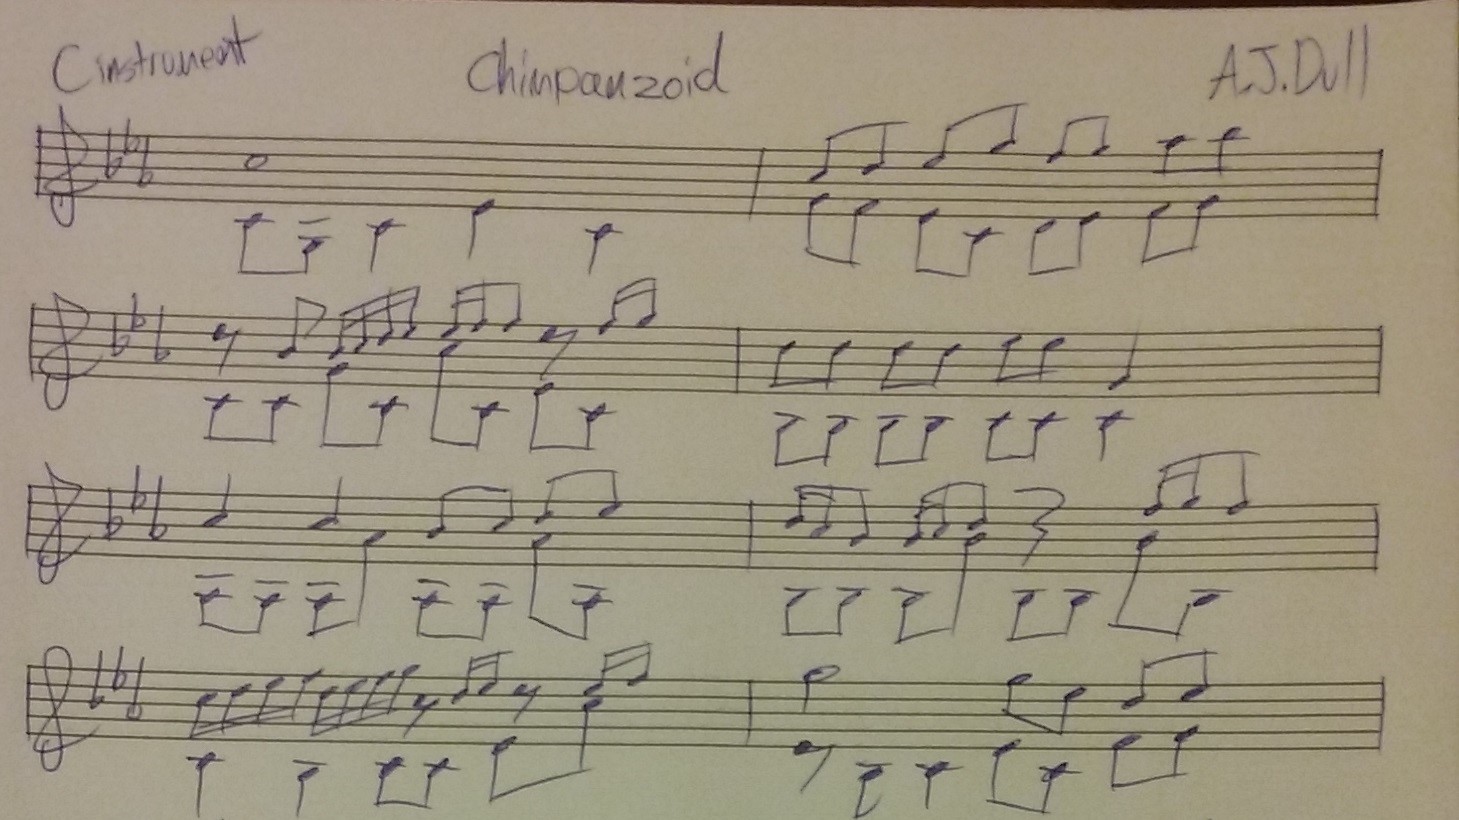 C instrument Chimpanzoid A.J. Dull